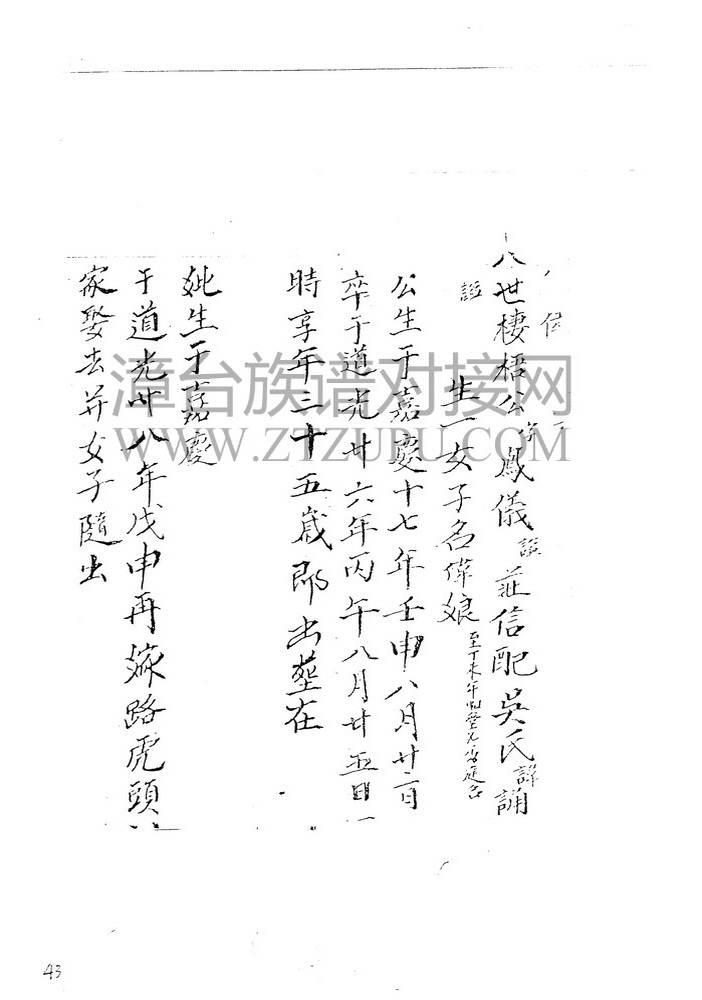 八世棲梧公字鳳儀謚莊信配吳氏諱誦
謚
生一女子名偉娘
公生于嘉慶十七年壬申八月廿二日
卒于道光廿六年丙午八月廿五日
時享年三十五歲即出塟在
妣生于嘉慶
于道光廿八年戊申再嫁路虎頭
家娶去并女子隨出
漳台族谱对接网
WWW.ZTZUPU.COM
43